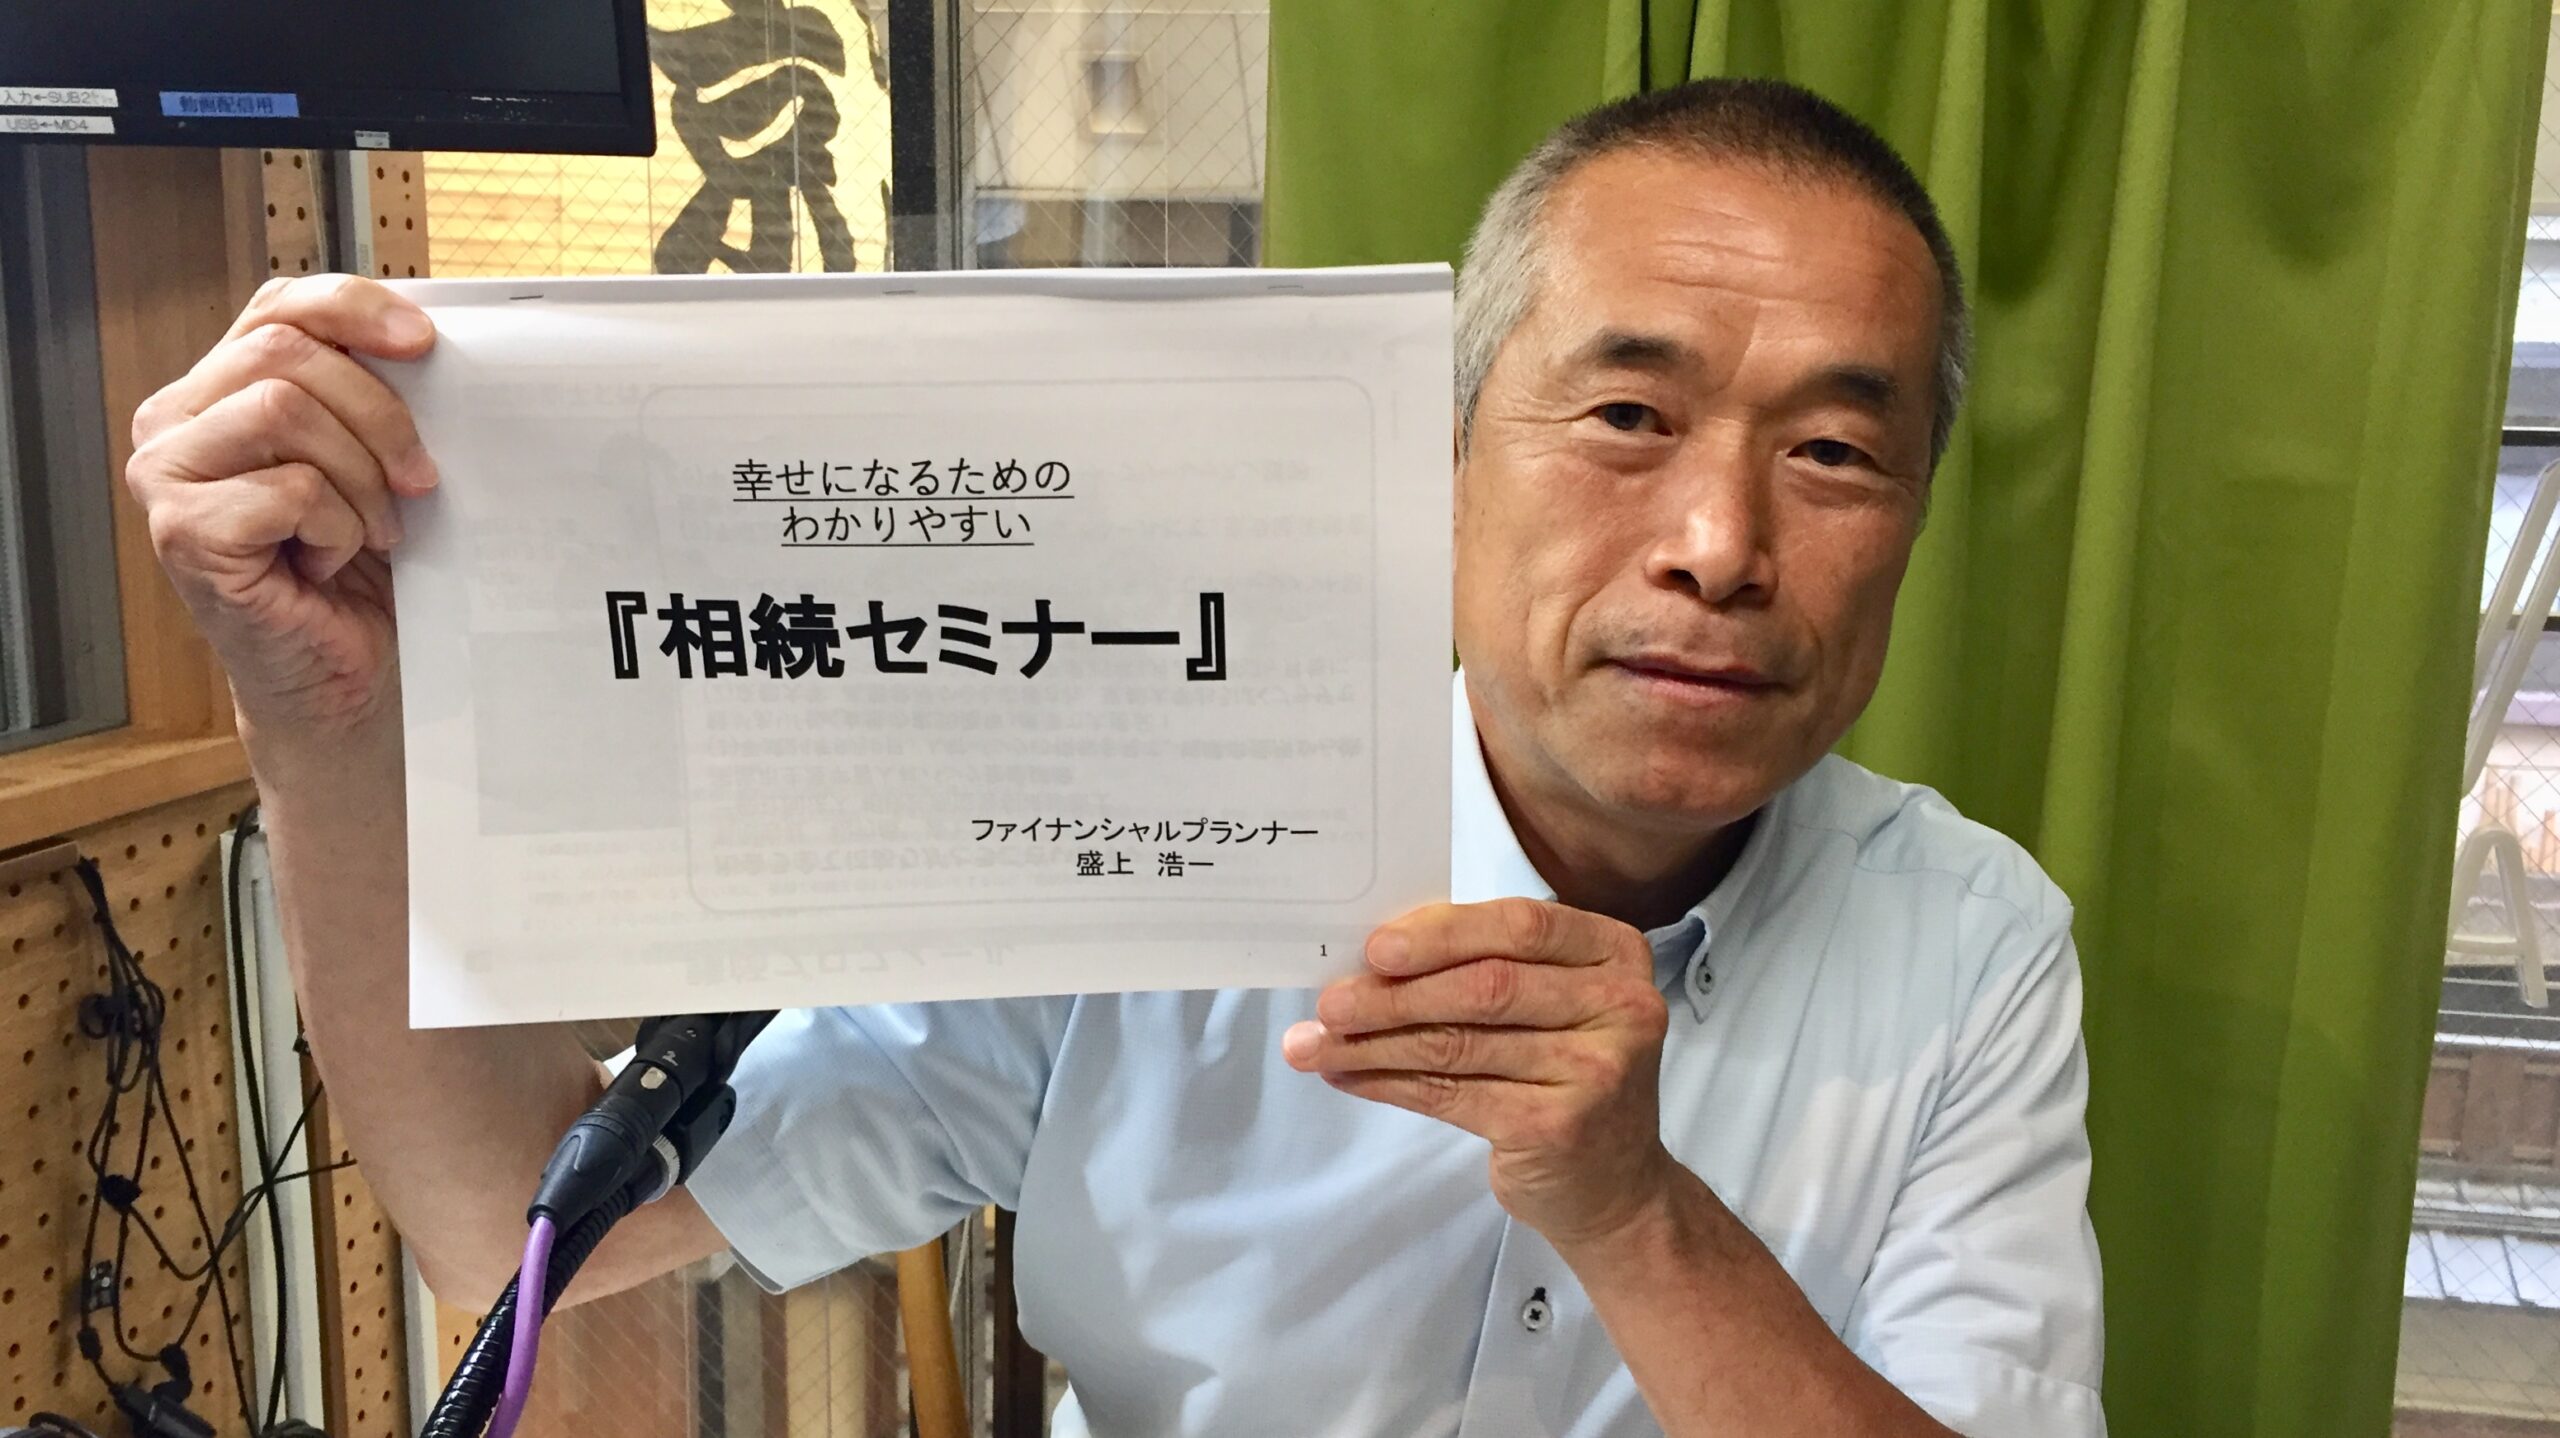 入力←SUB2
USB←MD4
動画配信用
京
幸せになるための
わかりやすい
『相続セミナー』
ファイナンシャルプランナー
盛上 浩一
1
2